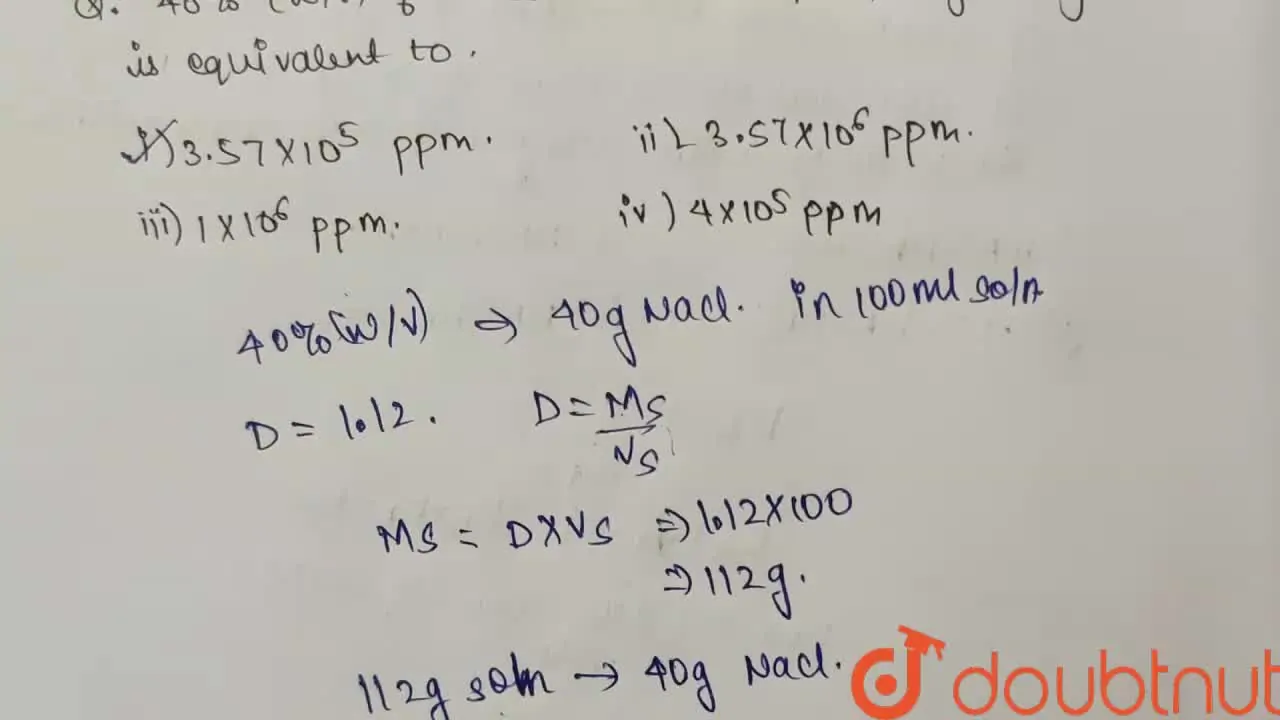 Q. 40% (W/V)
is equivalent to.
i) 3.57X10⁵ ppm. ii) 3.57X10⁶ ppm.
iii) 1X10⁶ ppm. iv) 4X10⁵ ppm
40%(W/V) ⇒ 40g NaCl. in 100ml soln
D = 1.12. D = Ms/Vs
Ms = DXVs ⇒ 1.12X100
⇒ 112g.
112g soln → 40g NaCl.
doubtnut